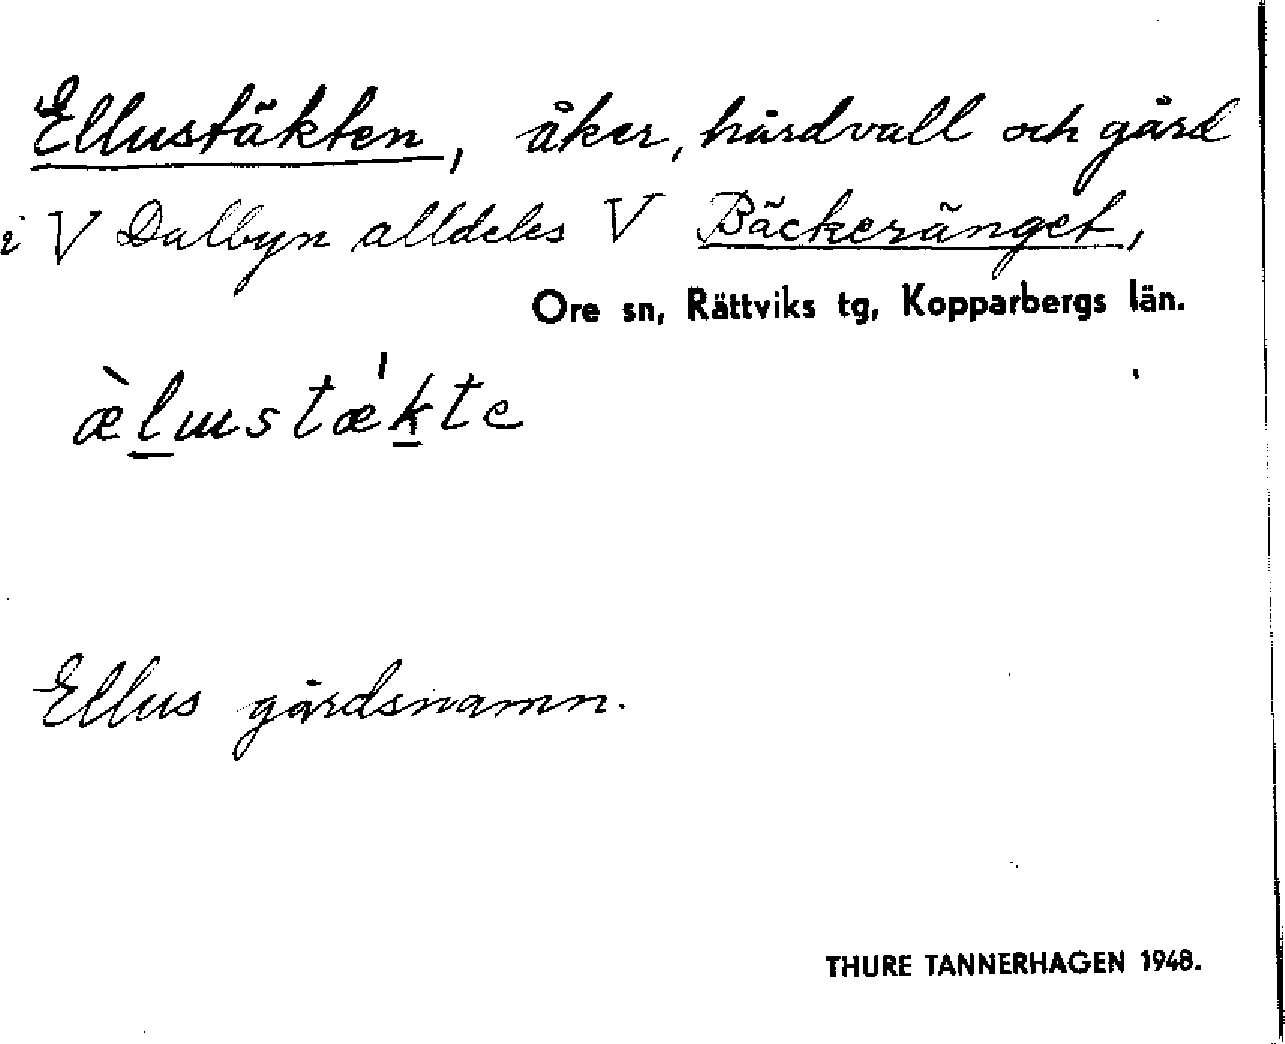 Ellustäkten, åker, hårdvall och gård
i V Dalbyn alldeles V Bäckeränget,
Ore sn, Rättviks tg, Kopparbergs län.
æ̀l̲ɯstæ̍k̲te
Ellus gårdsnamn.
THURE TANNERHAGEN 1948.